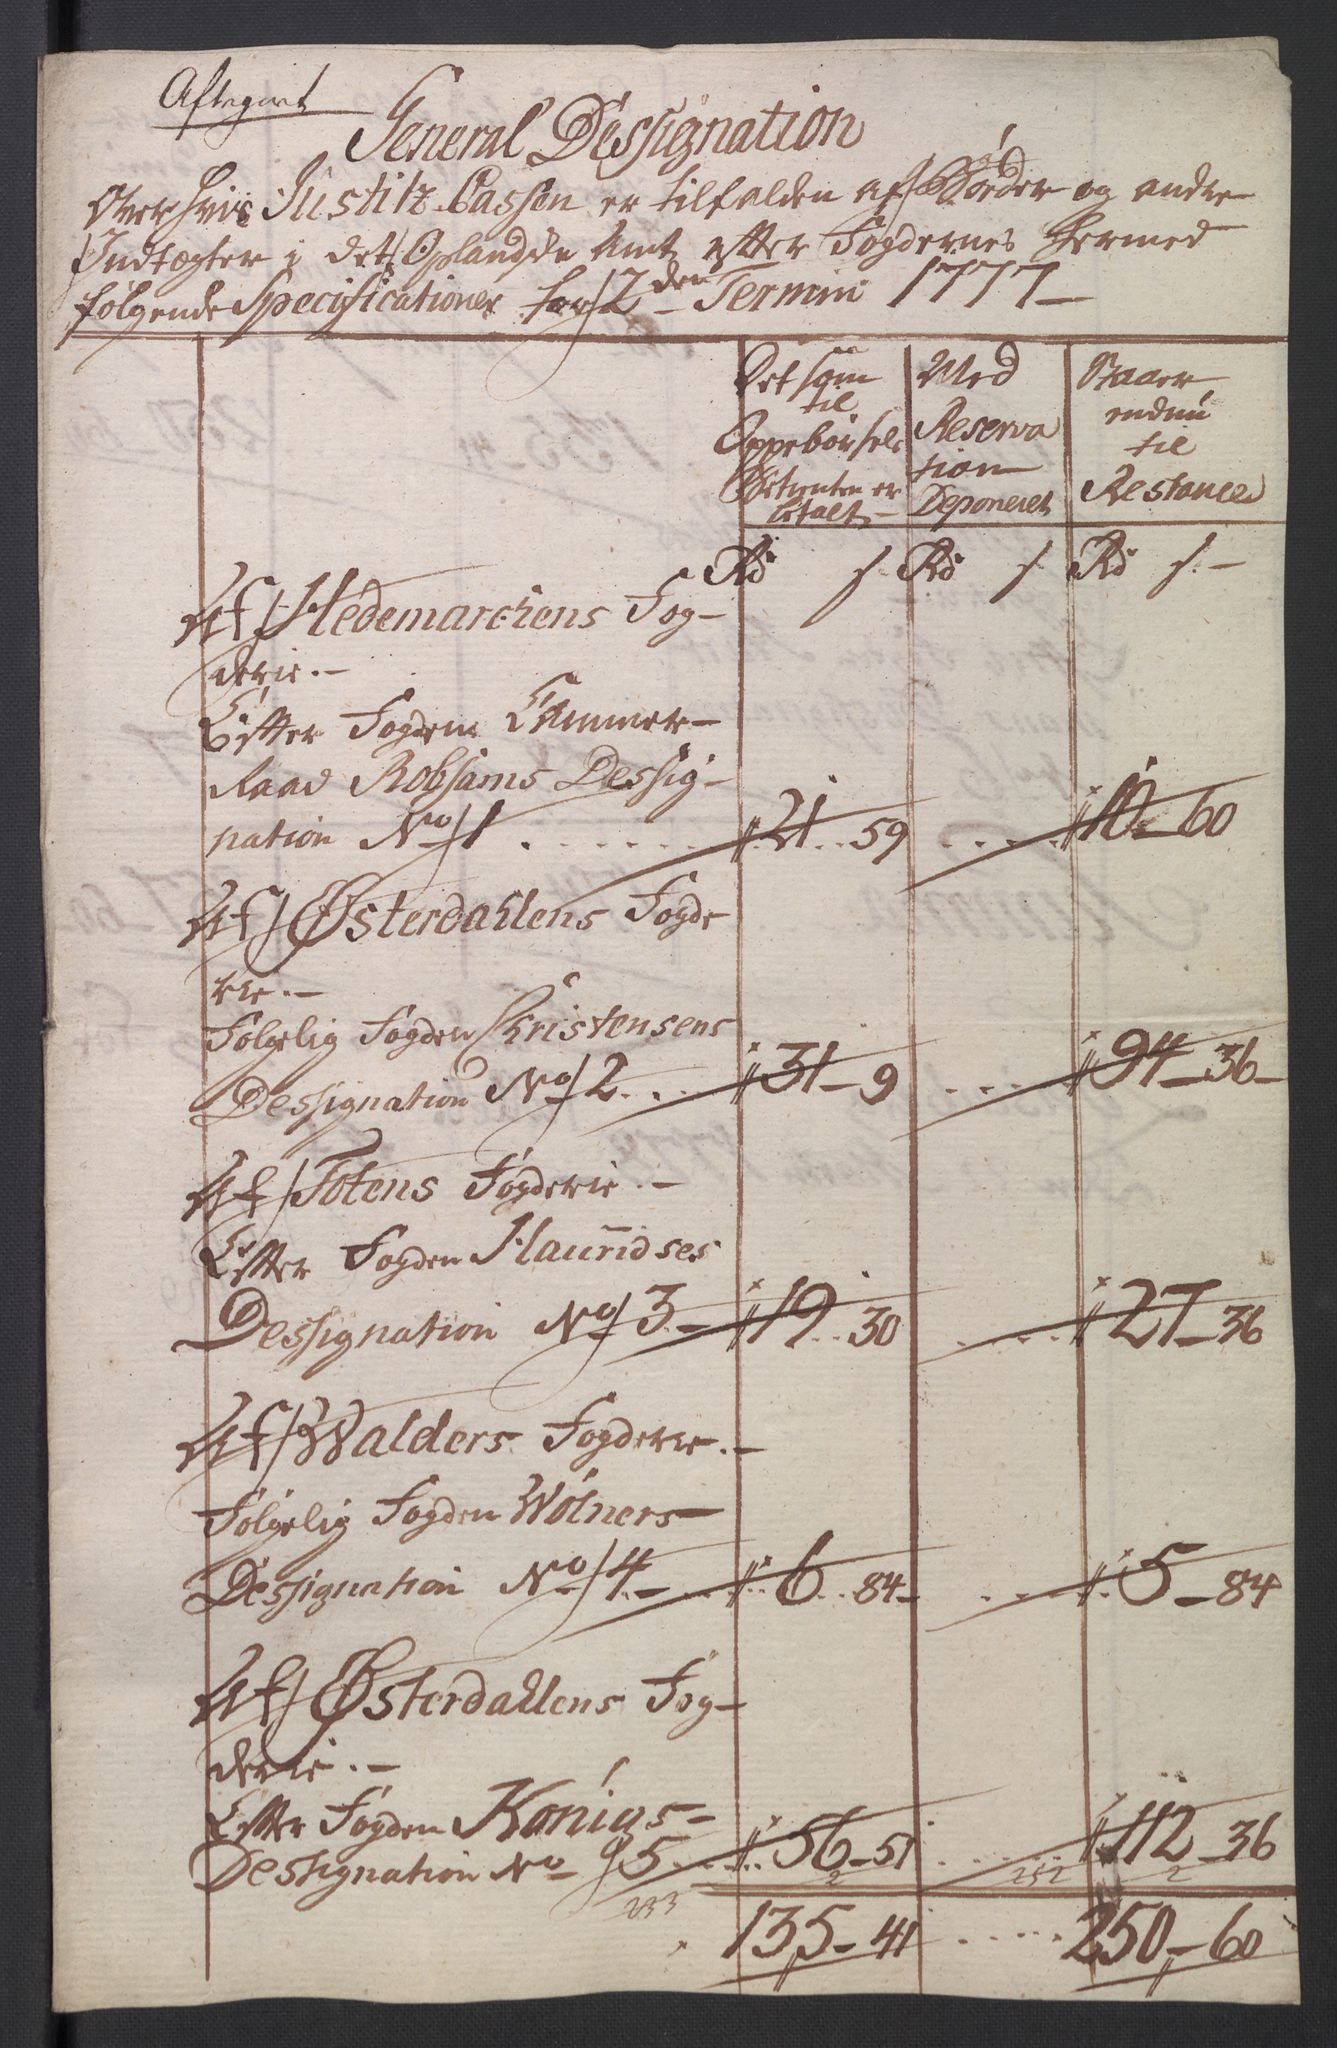 Aftegnet
General Dessignation
Over hvis Justitz Cassen er tilfalden af Bøder og andre
Indtægter i det Oplandske Amt efter Fogdernes hermed
følgende Specificationer for 2den Termin 1777
Det som Med Staaer
til Reserva endnu
Oppebørsels tion til
Betienten er Deponeret Restance
betalt
Rd s. Rd s. Rd s.
Af Hedemarchens Fog-
derie.
Efter Fogden Cammer-
Raad Robsams Dessig-
nation No 1 . . . 21 . . 59 . . . 10 - 60
Af Østerdahlens Fogde
rie.
Følgelig Fogden Christensens
Designation No 2 . . . 31 - 9 . . . 94 - 36
Af Totens Fogderie.
Efter Fogden Lauridses
Dessignation No 3 - 19 . . 30 . . . 27 - 36
Af Walders Fogderie.
Følgelig Fogden Wólners
Dessignation No 4 - 6 . . 84 . . . 5 - 84
Af Østerdahlens Fog-
derie.
Efter Fogden Kónigs-
Designation No 5 . . . 56 - 51 . . . 112 - 36
233 2 252 2
135 - 41 . . . 250 - 60